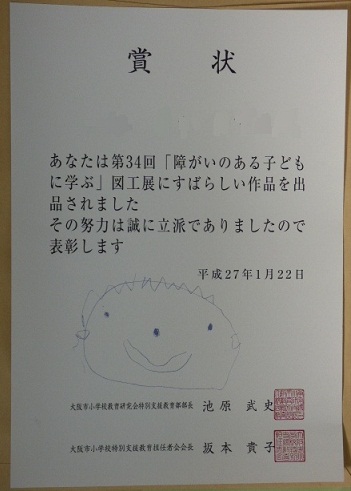 賞状
あなたは第34回「障がいのある子ども
に学ぶ」図工展にすばらしい作品を出
品されました
その努力は誠に立派でありましたので
表彰します
平成27年1月22日
大阪市小学校教育研究会特別支援教育部部長 池原 武史
大阪市小学校特別支援教育担任者会会長 坂本 貴子